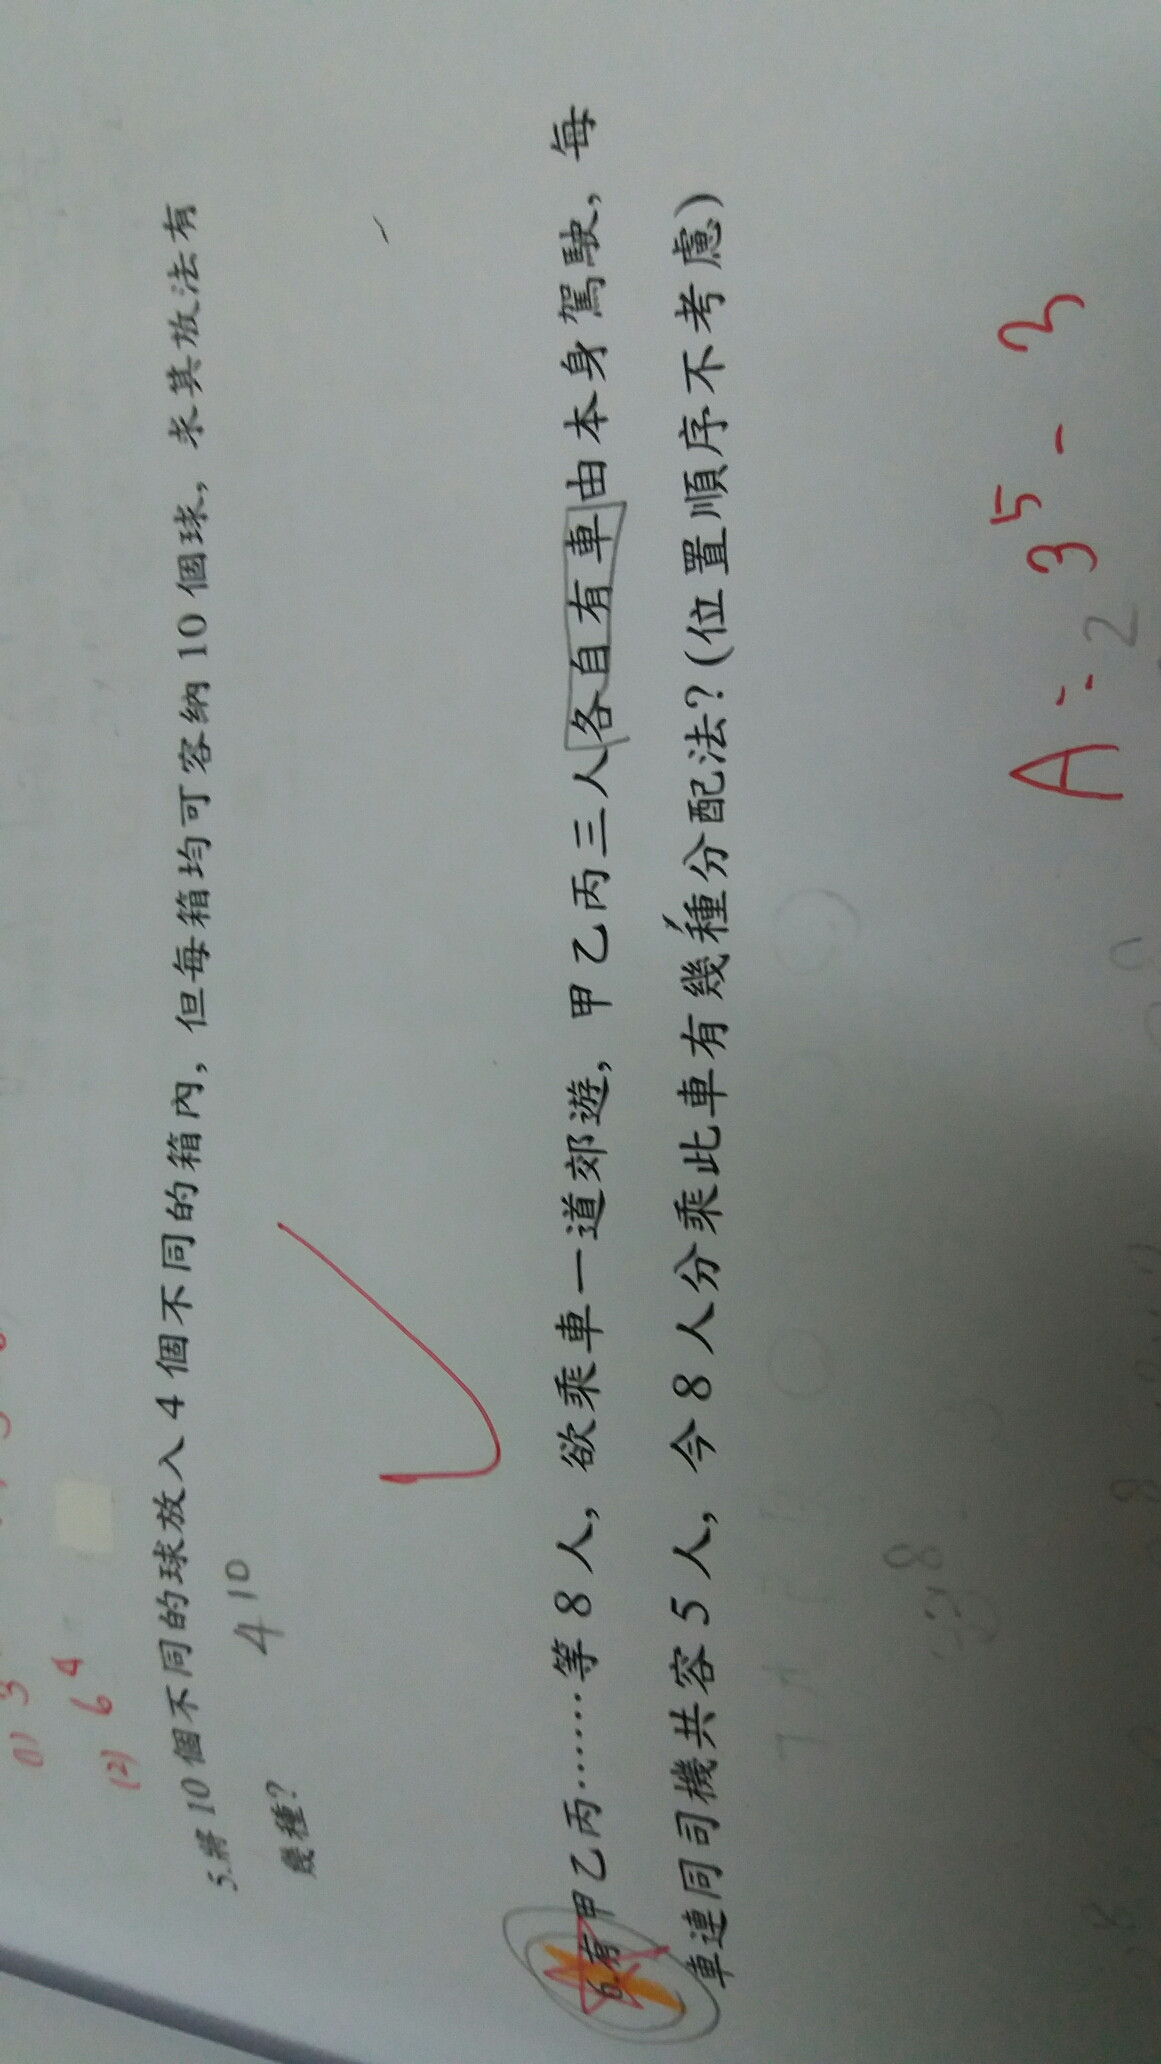 (1) 3
(2) 6⁴
5.將10個不同的球放入4個不同的箱內，但每箱均可容納10個球，求其放法有
幾種?
4¹⁰
6.有甲乙丙……等8人，欲乘車一道郊遊，甲乙丙三人各自有車由本身駕駛，每
車連同司機共容5人，今8人分乘此車有幾種分配法?(位置順序不考慮)
3⁸
A = 3⁵ - 3
2